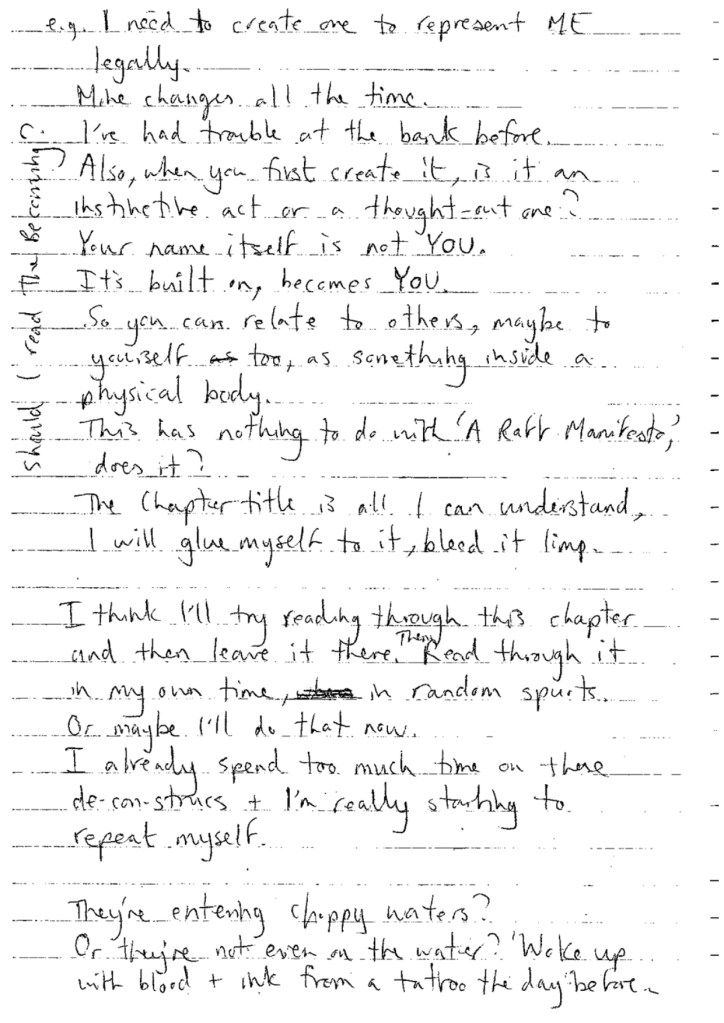 e.g. I need to create one to represent ME
legally.
Mine changes all the time.
I've had trouble at the bank before.
Also, when you first create it, is it an
instinctive act or a thought-out one?
Your name itself is not YOU.
It's built on, becomes YOU.
So you can relate to others, maybe to
yourself as too, as something inside a
physical body.
This has nothing to do with 'A Raft Manifesto,'
does it?
The Chapter title is all I can understand,
I will glue myself to it, bleed it limp.
Should I read The Becoming
I think I'll try reading through this chapter
and then leave it there. Then Read through it
in my own time, in random spurts.
Or maybe I'll do that now.
I already spend too much time on these
de-con-strucs + I'm really starting to
repeat myself.
They're entering choppy waters?
Or they're not even on the water? 'Woke up
with blood + ink from a tattoo the day before.